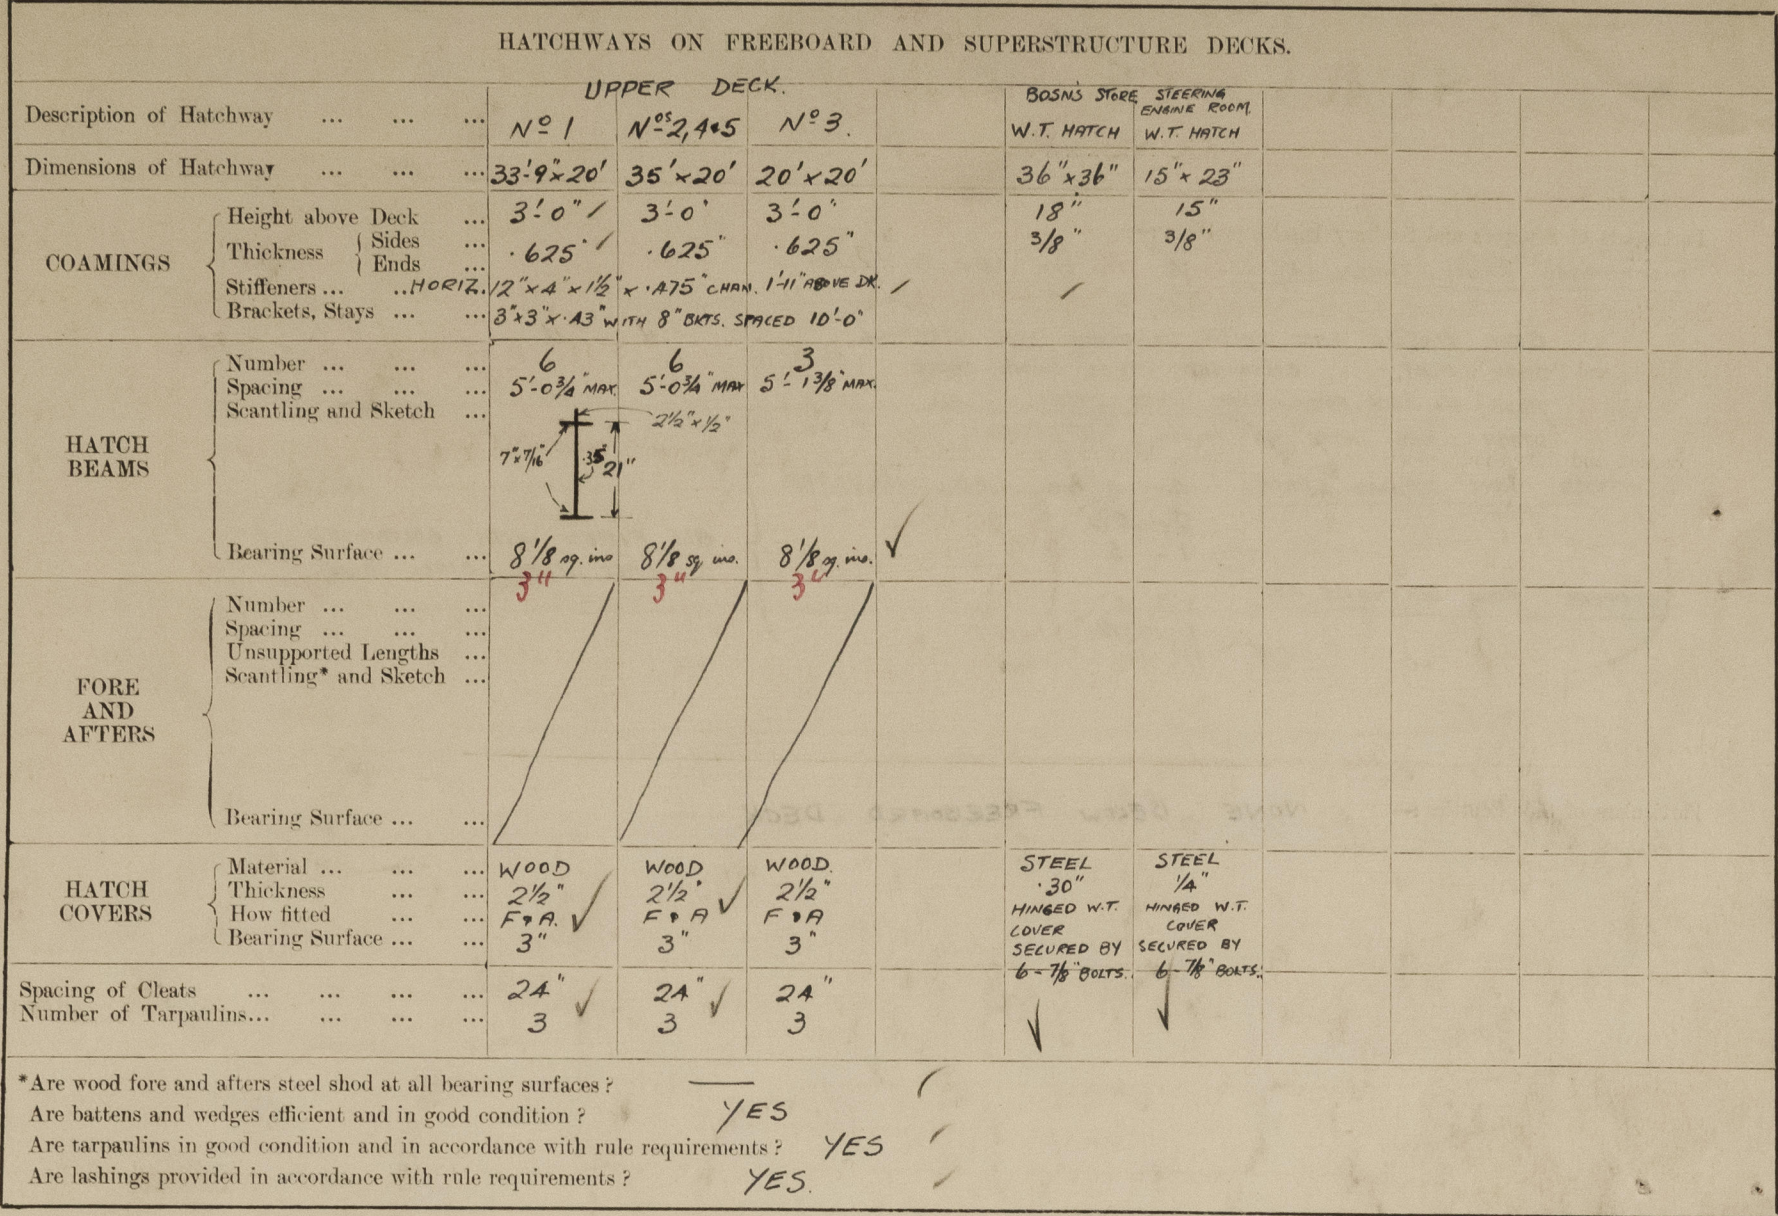 HATCHWAYS ON FREEBOARD AND SUPERSTRUCTURE DECKS.
UPPER DECK.
BOSN'S STORE STEERING ENGINE ROOM
Description of Hatchway ... ... ... Nº 1 Nºs 2, 4 & 5 Nº 3. W.T. HATCH W.T. HATCH
Dimensions of Hatchway ... ... ... 33'-9"×20' 35'×20' 20'×20' 36"×36" 15"×23"
COAMINGS
Height above Deck ... 3'-0" 3'-0" 3'-0" 18" 15"
Thickness { Sides ... Ends ... .625" .625" .625" 3/8" 3/8"
Stiffeners ... .. HORIZ. 12"×4"×1½"×.475" CHAN. 1'-11" ABOVE DK.
Brackets, Stays ... ... 3"×3"×.43" WITH 8" BKTS. SPACED 10'-0"
HATCH BEAMS
Number ... ... ... 6 6 3
Spacing ... ... ... 5'-0¾" MAX. 5'-0¾" MAX 5'-1⅜" MAX.
Scantling and Sketch ...
2½"×½"
7"×7/16" .35" 21"
Bearing Surface ... ... 8⅛ sq. ins 8⅛ sq. ins. 8⅛ sq. ins.
3" 3" 3"
FORE AND AFTERS
Number ... ... ...
Spacing ... ... ...
Unsupported Lengths ...
Scantling* and Sketch ...
Bearing Surface ... ...
HATCH COVERS
Material ... ... ... WOOD WOOD WOOD. STEEL STEEL
Thickness ... ... 2½" 2½" 2½" .30" ¼"
How fitted ... ... F & A. F & A F & A HINGED W.T. COVER SECURED BY 6-7/8" BOLTS. HINGED W.T. COVER SECURED BY 6-7/8" BOLTS.
Bearing Surface ... ... 3" 3" 3"
Spacing of Cleats ... ... ... ... 24" 24" 24"
Number of Tarpaulins... ... ... ... 3 3 3
*Are wood fore and afters steel shod at all bearing surfaces ? —
Are battens and wedges efficient and in good condition ? YES
Are tarpaulins in good condition and in accordance with rule requirements ? YES
Are lashings provided in accordance with rule requirements ? YES.